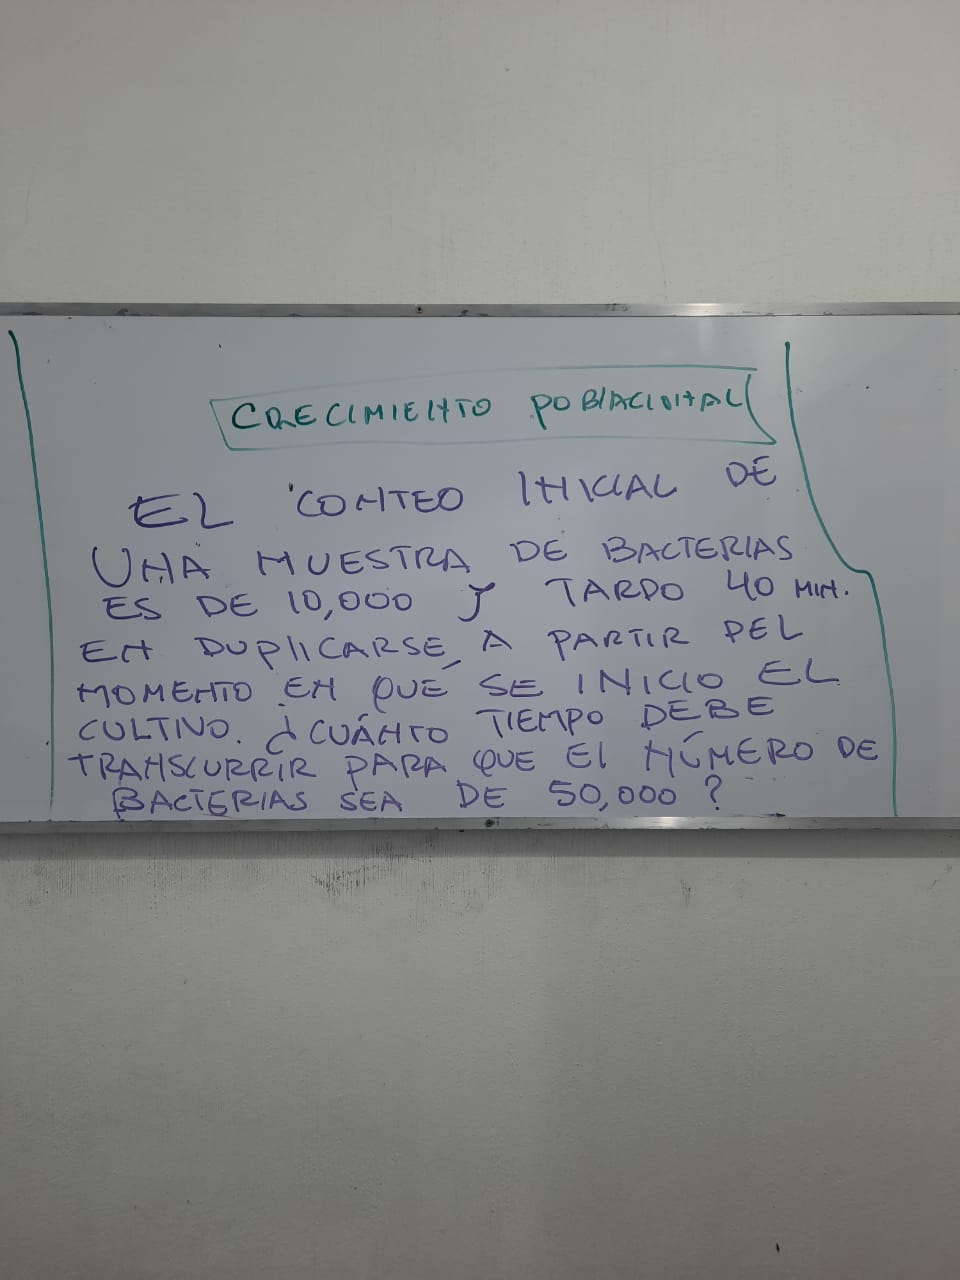 CRECIMIENTO POBLACIONAL
EL CONTEO INICIAL DE
UNA MUESTRA DE BACTERIAS
ES DE 10,000 Y TARDO 40 MIN.
EN DUPLICARSE, A PARTIR DEL
MOMENTO EN QUE SE INICIO EL
CULTIVO. ¿CUÁNTO TIEMPO DEBE
TRANSCURRIR PARA QUE El NÚMERO DE
BACTERIAS SEA DE 50,000?